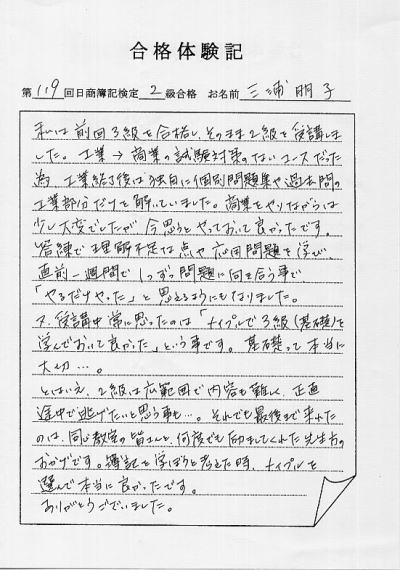 合格体験記
第119回日商簿記検定 2 級合格 お名前 三浦朋子
私は前回3級を合格し、そのまま2級を受講しま
した。工業→商業の試験対策のないコースだった
為、工業終了後は独自に個別問題集や過去問の
工業部分だけを解いていました。商業をやりながらは
少し大変でしたが、今思うとやっておいて良かったです。
答練で理解不足な点や応用問題を学び、
直前一週間で1つずつ問題に向き合う事で
「やるだけやった」と思えるようにもなりました。
又、受講中常に思ったのは「ナイフ゜ルで3級(基礎)を
学んでおいて良かった」という事です。基礎って本当に
大切…。
とはいえ、2級は広範囲で内容も難しく、正直
途中で逃げたいと思う事も…。それでも最後まで来れた
のは、同じ教室の皆さんと、何度でも励ましてくれた先生方の
おかげです。簿記を学ぼうと考えた時、ナイフ゜ルを
選んで本当に良かったです。
ありがとうございました。